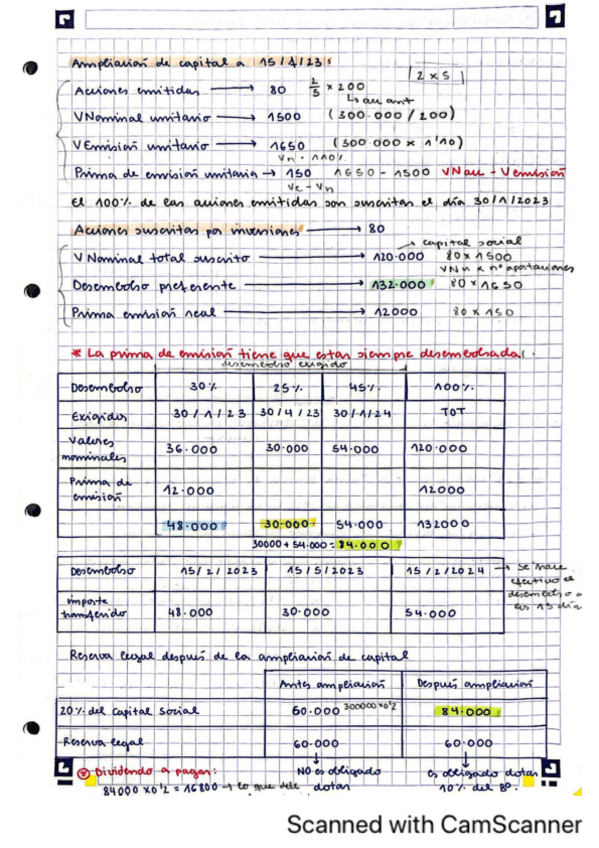 Ampliación de capital a 15/1/23:
2 x 5
Acciones emitidas → 80 2/5 x 200
↳ au ant
VNominal unitario → 1500 (300.000 / 200)
VEmisión unitario → 1650 (300.000 x 1'10)
Vn · 110%
Prima de emisión unitaria → 150 1650 - 1500 VNau - Vemisión
Ve - Vn
El 100% de las acciones emitidas son suscritas el día 30/1/2023
Acciones suscritas por inversiones → 80
→ capital social
V Nominal total suscrito → 120.000 80 x 1500
VNu x nº aportaciones
Desembolso preferente → 132.000 80 x 1650
Prima emisión real → 12000 80 x 150
* La prima de emisión tiene que estar siempre desembolsada.
desembolso exigido
Desembolso 30% 25% 45% 100%
Exigidos 30/1/23 30/4/23 30/1/24 TOT
Valores nominales 36.000 30.000 54.000 120.000
Prima de emisión 12.000 12000
48.000 30.000 54.000 132000
30000 + 54.000 = 84.000
Desembolso 15/2/2023 15/5/2023 15/2/2024 → se hace
efectivo el
desembolso a
los 15 día
importe transferido 48.000 30.000 54.000
Reserva legal después de la ampliación de capital
Antes ampliación Después ampliación
20% del capital social 60.000 300000 x 0'2 84.000
Reserva legal 60.000 60.000
NO es obligado dotar
es obligado dotar 10% del Bº.
Dividendo a pagar:
84000 x 0'2 = 16800 → lo que debe
Scanned with CamScanner